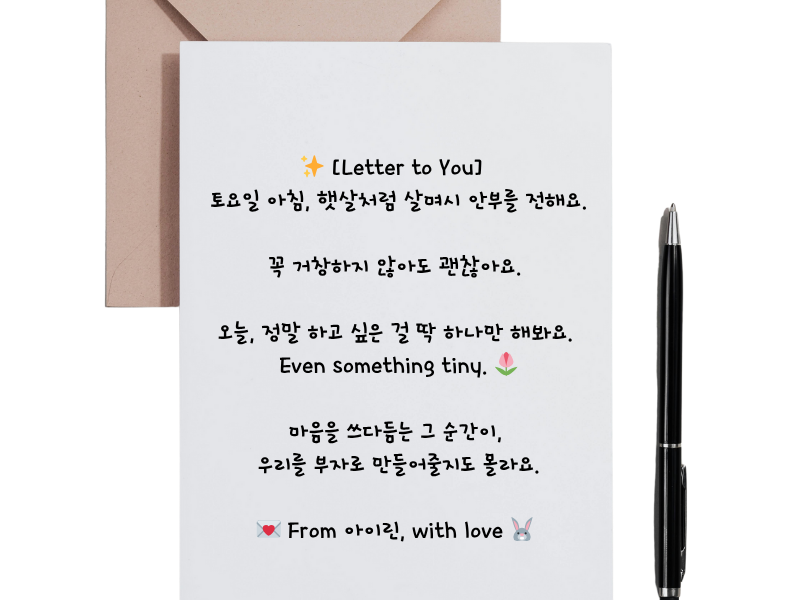 ✨ [Letter to You]
토요일 아침, 햇살처럼 살며시 안부를 전해요.
꼭 거창하지 않아도 괜찮아요.
오늘, 정말 하고 싶은 걸 딱 하나만 해봐요.
Even something tiny. 🌷
마음을 쓰다듬는 그 순간이,
우리를 부자로 만들어줄지도 몰라요.
💌 From 아이린, with love 🐰